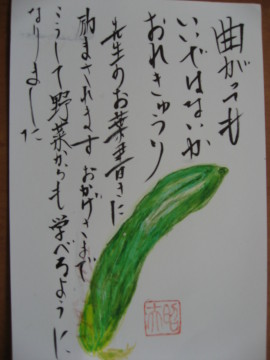 曲がっても
いいではないか
おれきゅうり
先生のお葉書きに
励まされます おかげさまで
こうして野菜からも学べるように
なりました